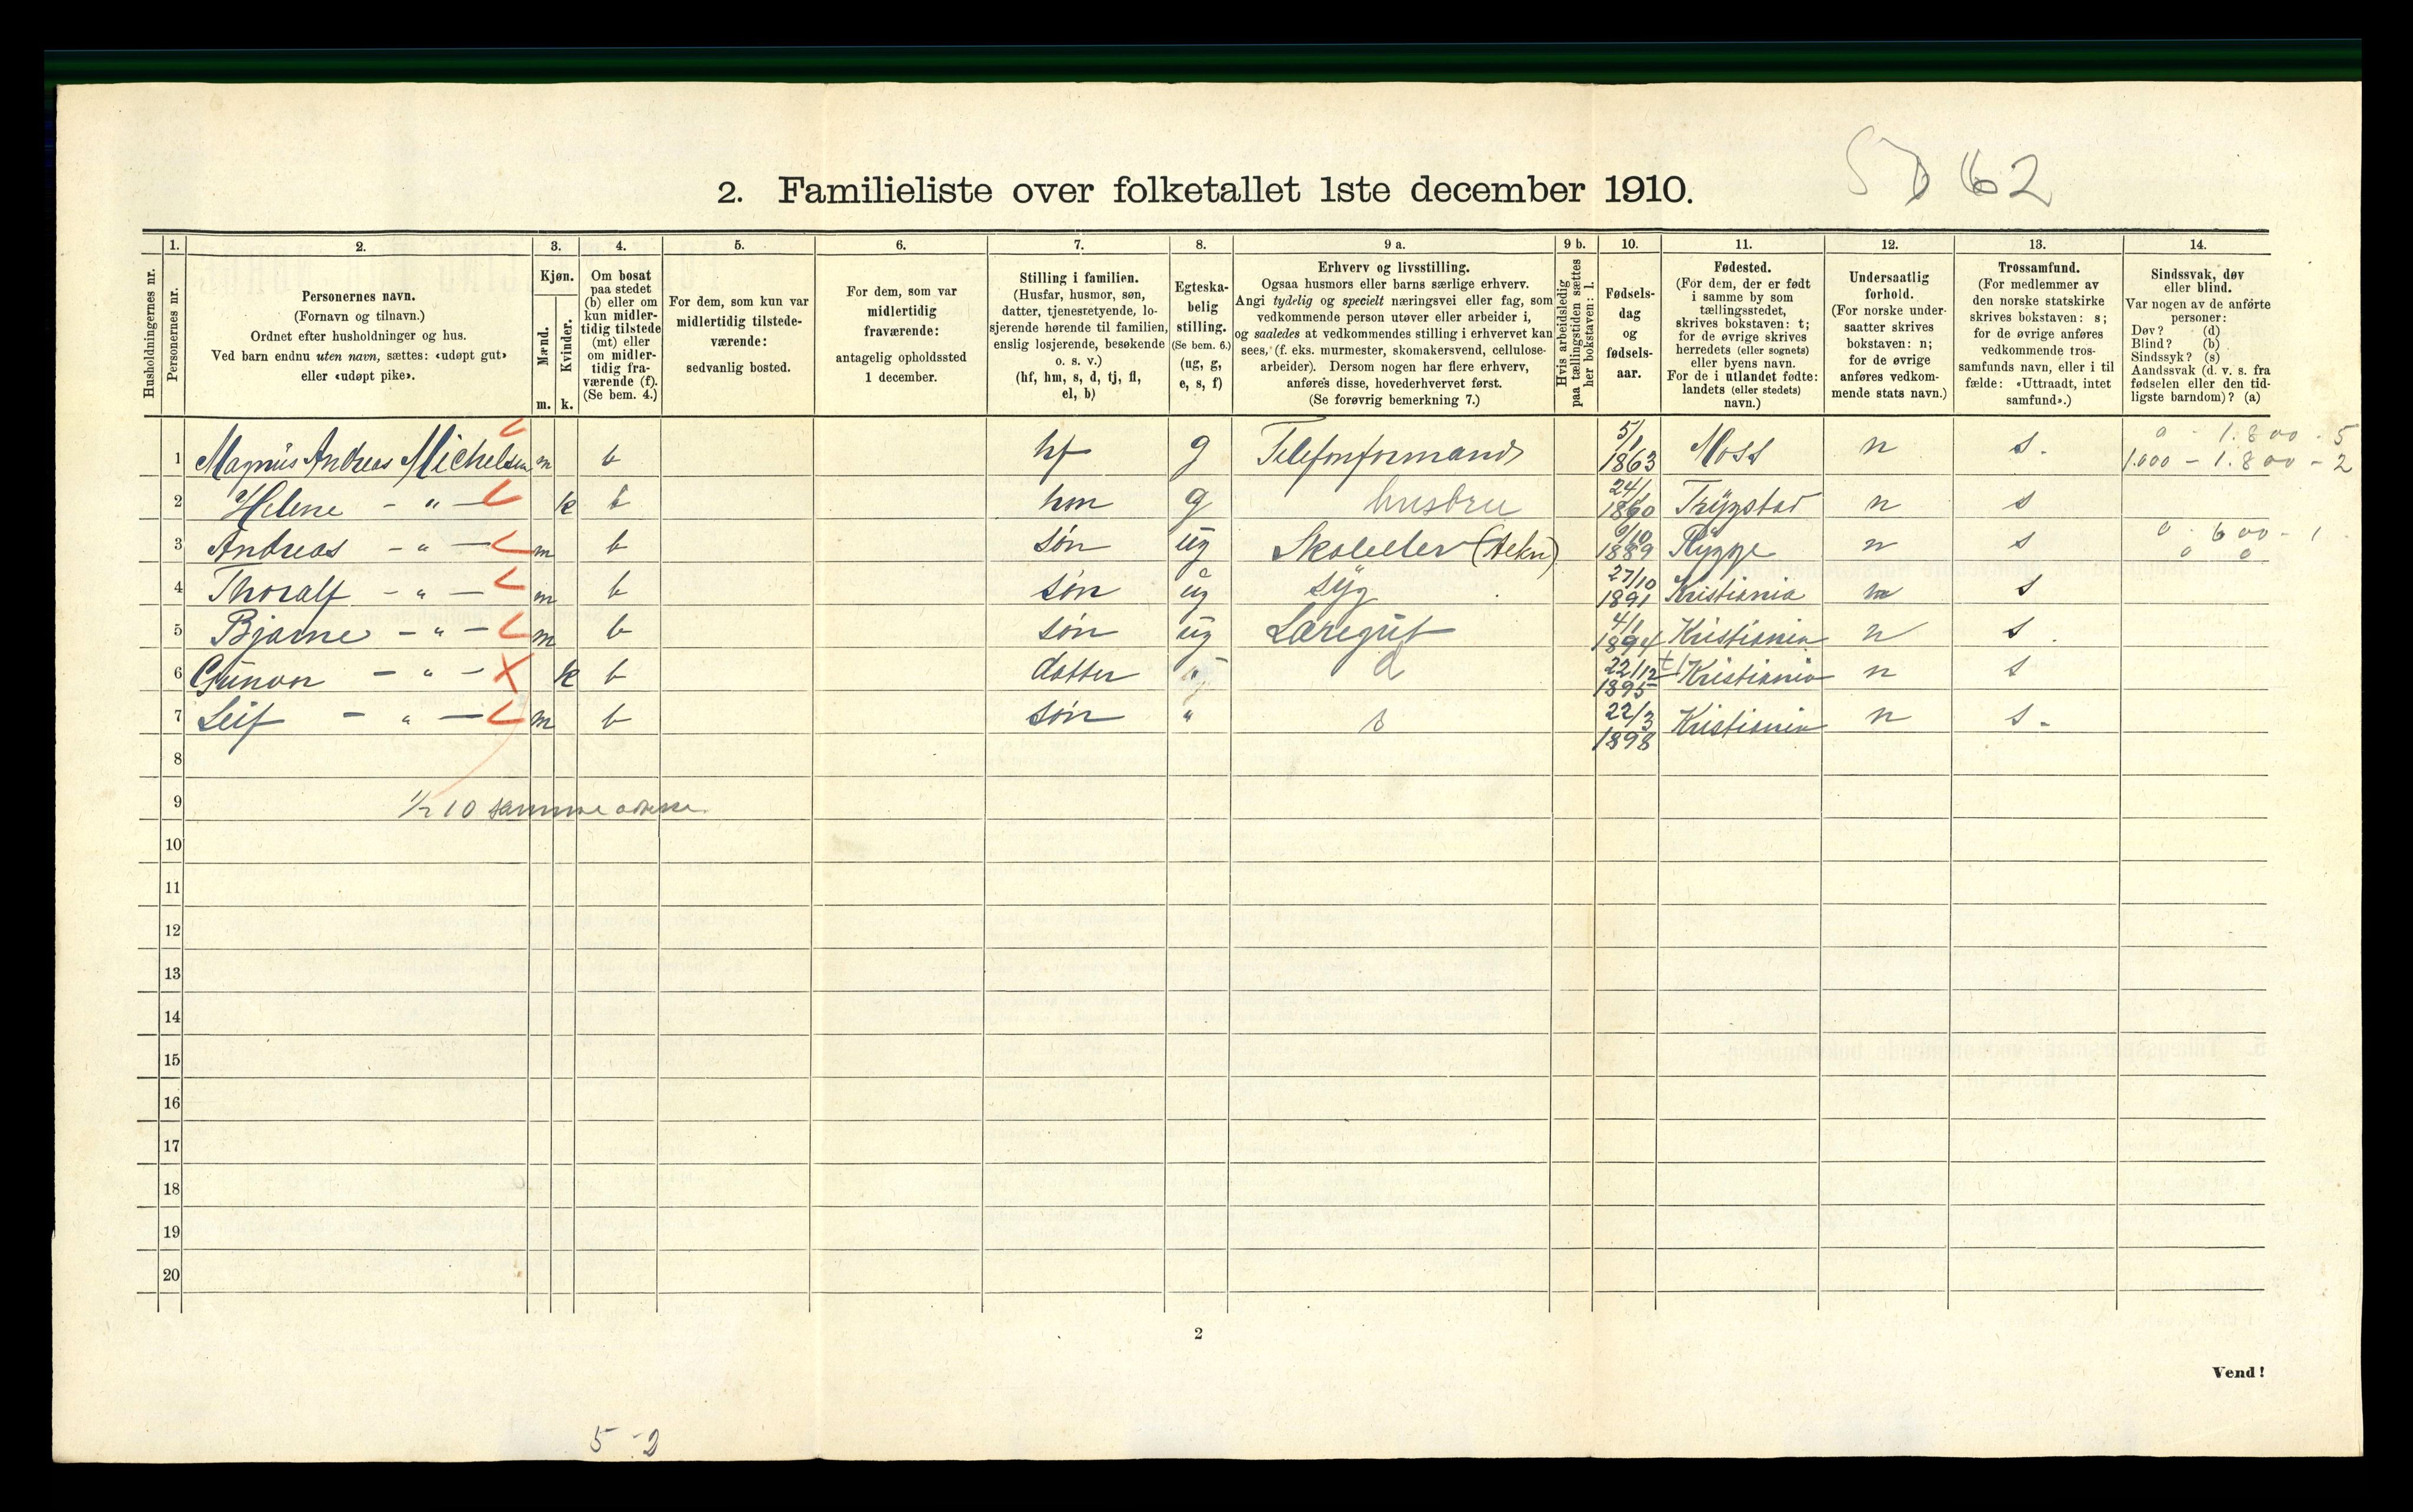 62
2. Familieliste over folketallet 1ste december 1910.
Husholdningernes nr.
1. Personernes nr.
2. Personernes navn.
(Fornavn og tilnavn.)
Ordnet efter husholdninger og hus.
Ved barn endnu uten navn, sættes: «udøpt gut»
eller «udøpt pike».
3. Kjøn.
Mænd. m.
Kvinder. k.
4. Om bosat
paa stedet
(b) eller om
kun midler-
tidig tilstede
(mt) eller
om midler-
tidig fra-
værende (f).
(Se bem. 4.)
5. For dem, som kun var
midlertidig tilstede-
værende:
sedvanlig bosted.
6. For dem, som var
midlertidig
fraværende:
antagelig opholdssted
1 december.
7. Stilling i familien.
(Husfar, husmor, søn,
datter, tjenestetyende, lo-
sjerende hørende til familien,
enslig losjerende, besøkende
o. s. v.)
(hf, hm, s, d, tj, fl,
el, b)
8. Egteska-
belig
stilling.
(Se bem. 6.)
(ug, g,
e, s, f)
9 a. Erhverv og livsstilling.
Ogsaa husmors eller barns særlige erhverv.
Angi tydelig og specielt næringsvei eller fag, som
vedkommende person utøver eller arbeider i,
og saaledes at vedkommendes stilling i erhvervet kan
sees, (f. eks. murmester, skomakersvend, cellulose-
arbeider). Dersom nogen har flere erhverv,
anføres disse, hovederhvervet først.
(Se forøvrig bemerkning 7.)
9 b. Hvis arbeidsledig
paa tællingstiden sættes
her bokstaven: l.
10. Fødsels-
dag
og
fødsels-
aar.
11. Fødested.
(For dem, der er født
i samme by som
tællingsstedet,
skrives bokstaven: t;
for de øvrige skrives
herredets (eller sognets)
eller byens navn.
For de i utlandet fødte:
landets (eller stedets)
navn.)
12. Undersaatlig
forhold.
(For norske under-
saatter skrives
bokstaven: n;
for de øvrige
anføres vedkom-
mende stats navn.)
13. Trossamfund.
(For medlemmer av
den norske statskirke
skrives bokstaven: s;
for de øvrige anføres
vedkommende tros-
samfunds navn, eller i til
fælde: «Uttraadt, intet
samfund».)
14. Sindssvak, døv
eller blind.
Var nogen av de anførte
personer:
Døv? (d)
Blind? (b)
Sindssyk? (s)
Aandssvak (d. v. s. fra
fødselen eller den tid-
ligste barndom)? (a)
1 Magnus Andreas Michelsen m b hf g Telefonformand 5/1 1863 Moss n s. 0 - 1.800 - 5
1.000 - 1.800 - 2
2 Helene - " - k b hm g husbru 24/1 1860 Trygstad n s
3 Andreas - " - m b søn ug Skoleelev (tekn) 9/10 1889 Rygge n s 0 - 600 - 1
0 0
4 Thoralf - " - m b søn ug syg 27/10 1891 Kristiania n s
5 Bjarne - " - m b søn ug Læregut 4/1 1894 Kristiania n s.
6 Gunvor - " - k b datter " d 22/12 1895 t/ Kristiania n s
7 Leif - " - m b søn " s 22/3 1898 Kristiania n s.
8
9 1/2 10 samme adresse
10
11
12
13
14
15
16
17
18
19
20
2
Vend!
5 - 2